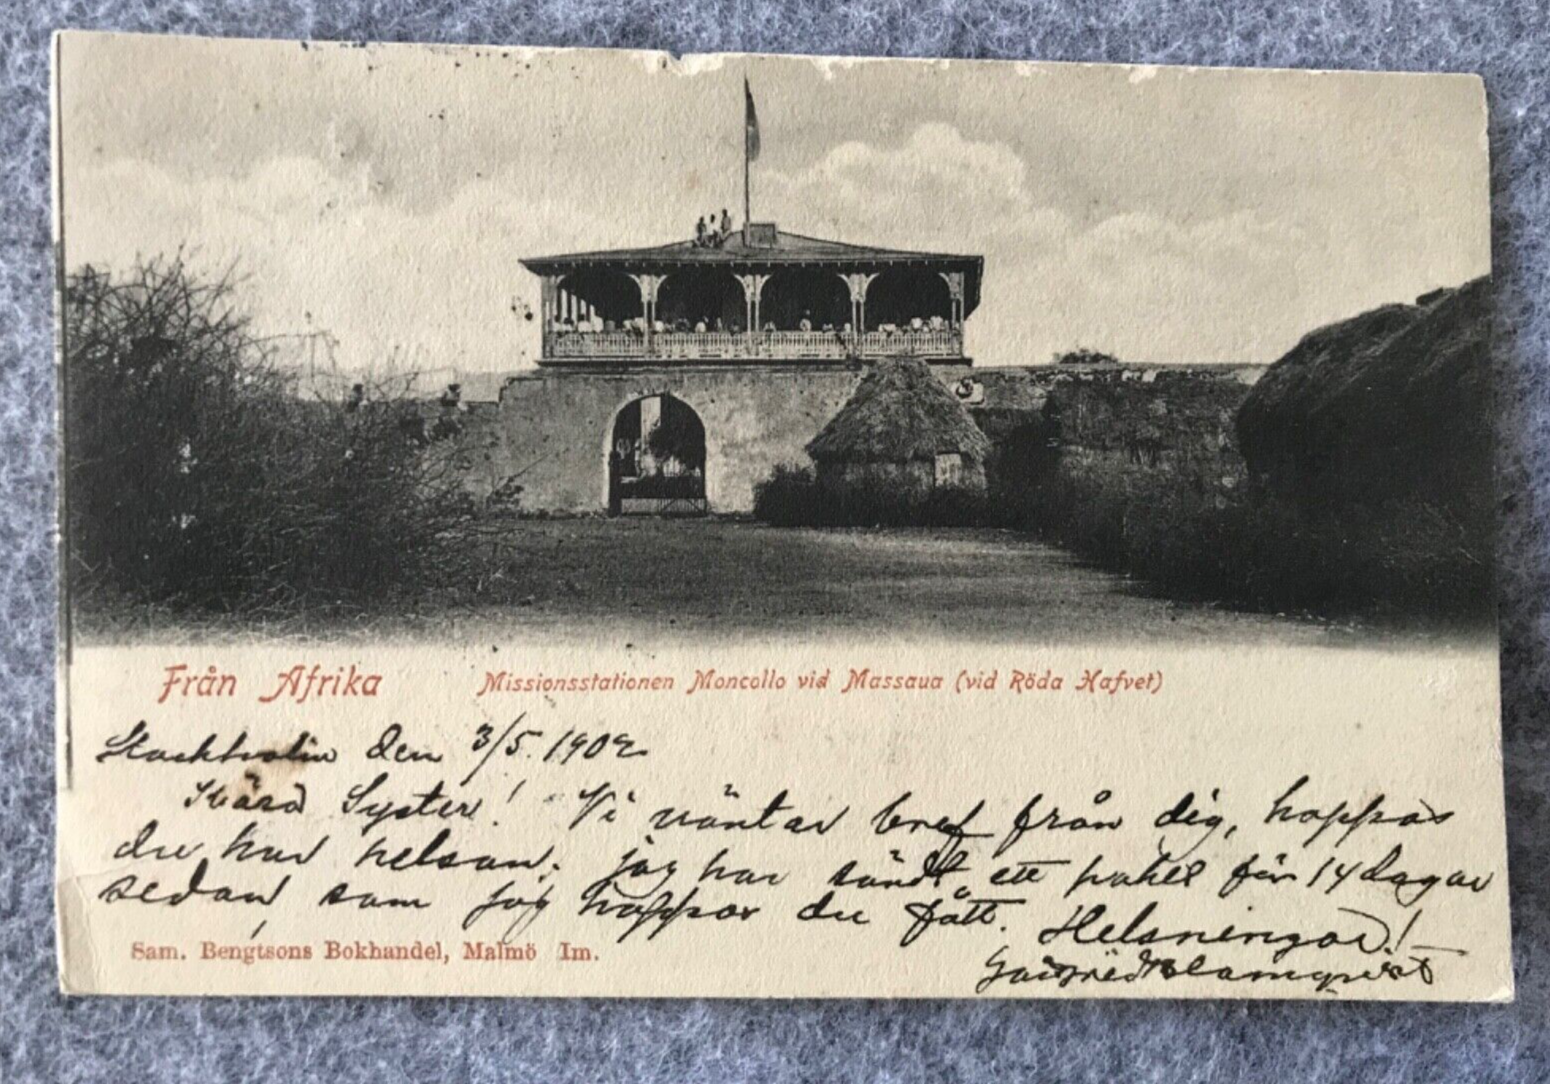 Från Afrika Missionsstationen Moncollo vid Massaua (vid Röda Hafvet)
Stockholm den 3/5. 1902
Kära Syster! Vi väntar bref från dig, hoppas
du har helsan, jag har sändt ett paket för 14 dagar
sedan som jag hoppas du fått. Helsningar!
Blomqvist
Sam. Bengtsons Bokhandel, Malmö Im.